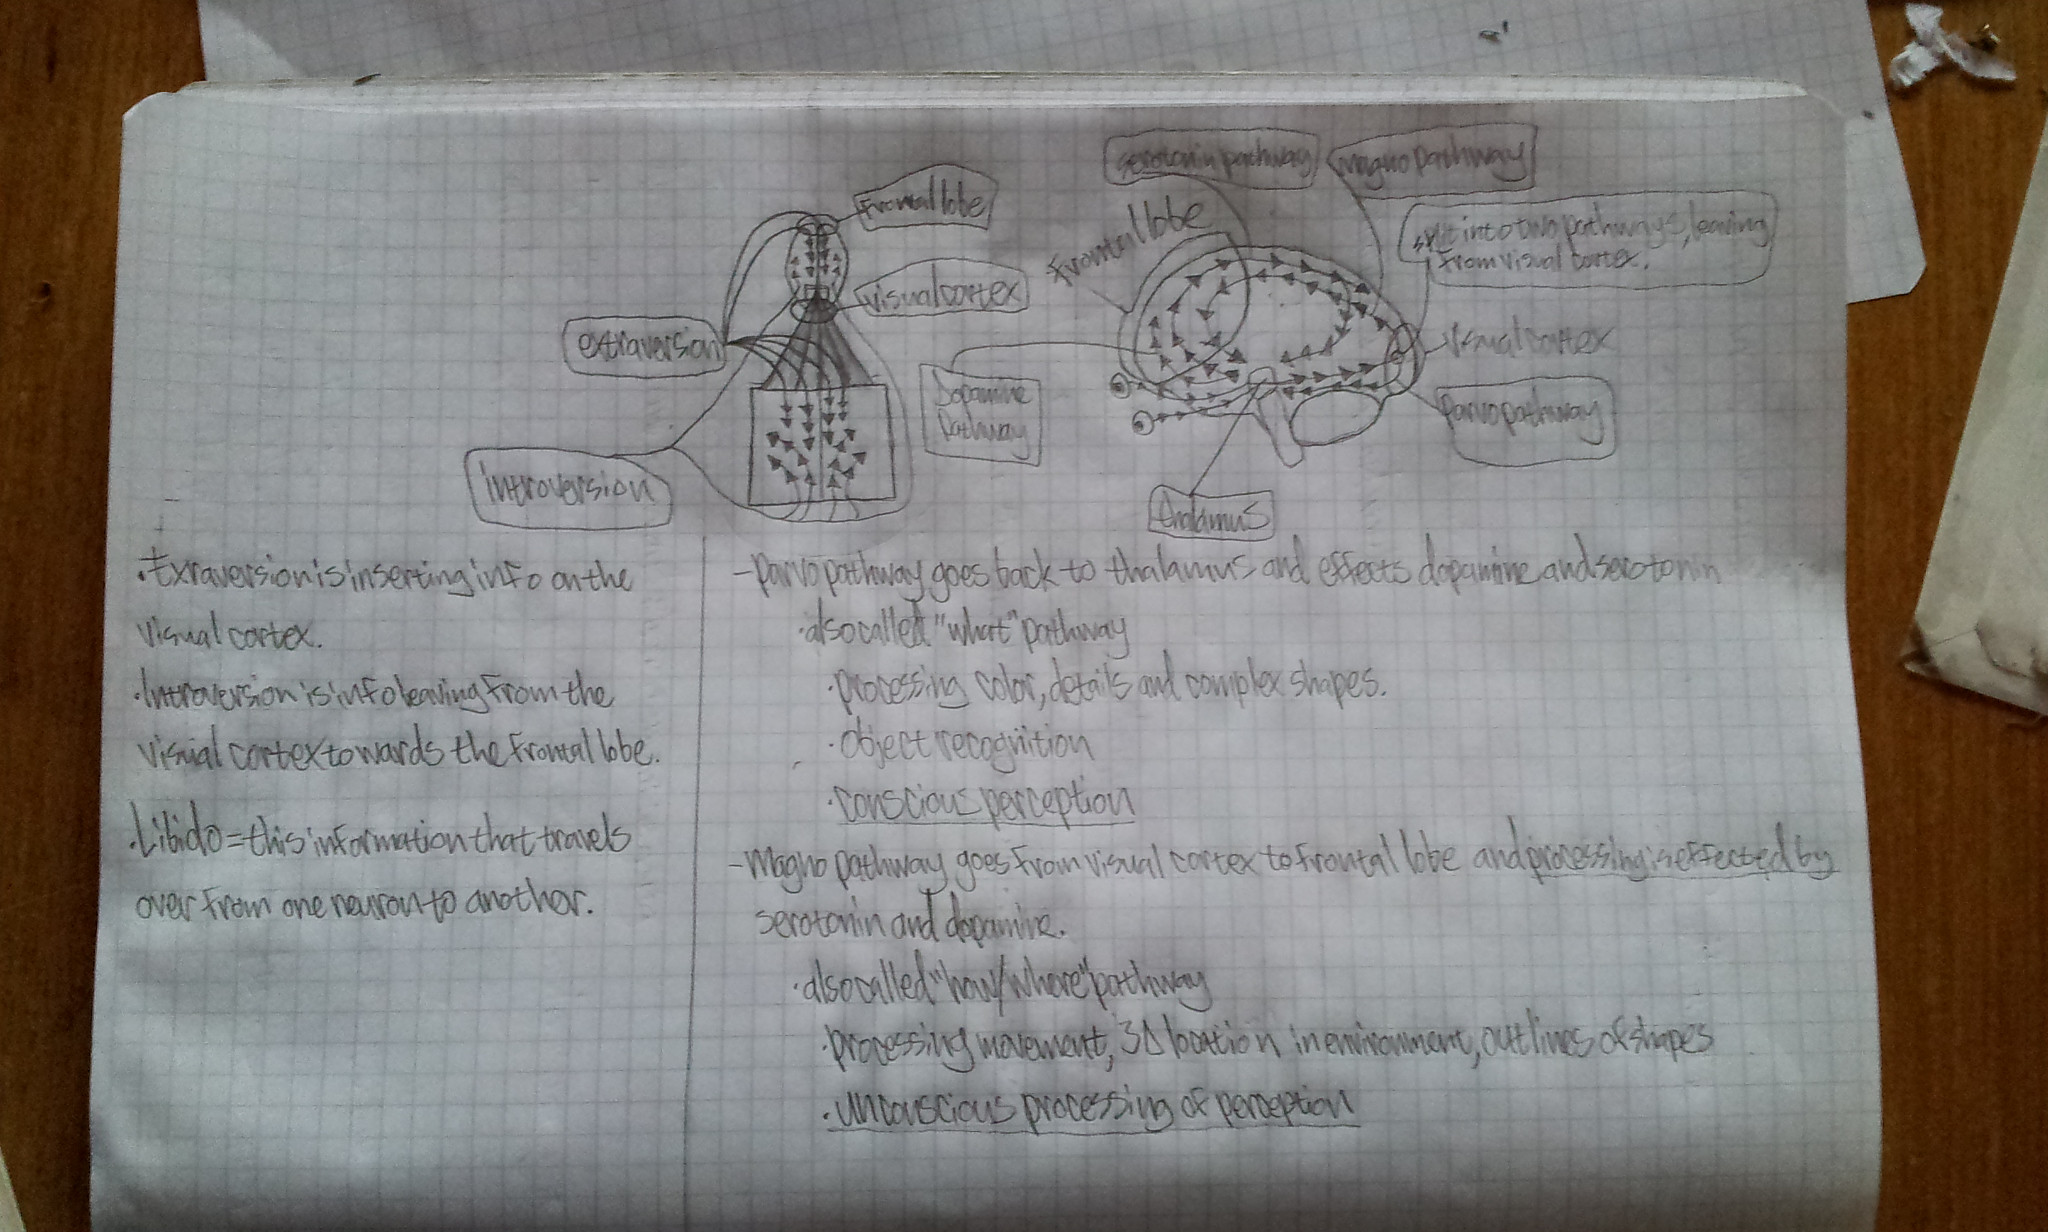 serotonin pathway
magno pathway
frontal lobe
frontal lobe
split into two pathways, leaving
from visual cortex.
visual cortex
extraversion
visual cortex
Dopamine
Pathway
parvo pathway
introversion
thalamus
·Extraversion is inserting info on the
visual cortex.
·Introversion is info leaving from the
visual cortex towards the frontal lobe.
·Libido = this information that travels
over from one neuron to another.
- parvo pathway goes back to thalamus and effects dopamine and serotonin
·also called "what" pathway
·processing color, details and complex shapes.
·object recognition
·conscious perception
- Magno pathway goes from visual cortex to frontal lobe and processing is effected by
serotonin and dopamine.
·also called "how/where" pathway
·processing movement, 3D location in environment, outlines of shapes
·unconscious processing of perception